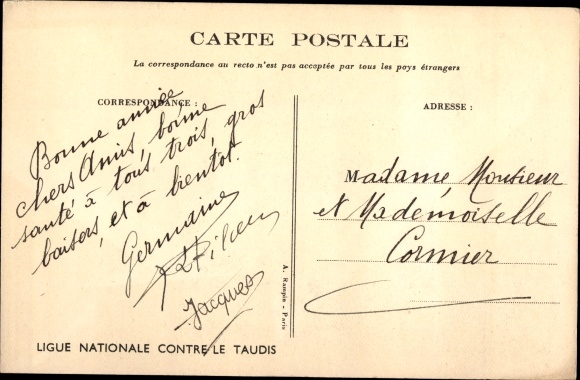 CARTE POSTALE
La correspondance au recto n'est pas acceptée par tous les pays étrangers
CORRESPONDANCE :
Bonne année
chers Amis, bonne
santé à tous trois, gros
baisers, et à bientot.
Germaine
Jacques
LIGUE NATIONALE CONTRE LE TAUDIS
A. Rampin - Paris
ADRESSE :
Madame, Monsieur
et Mademoiselle
Cormier